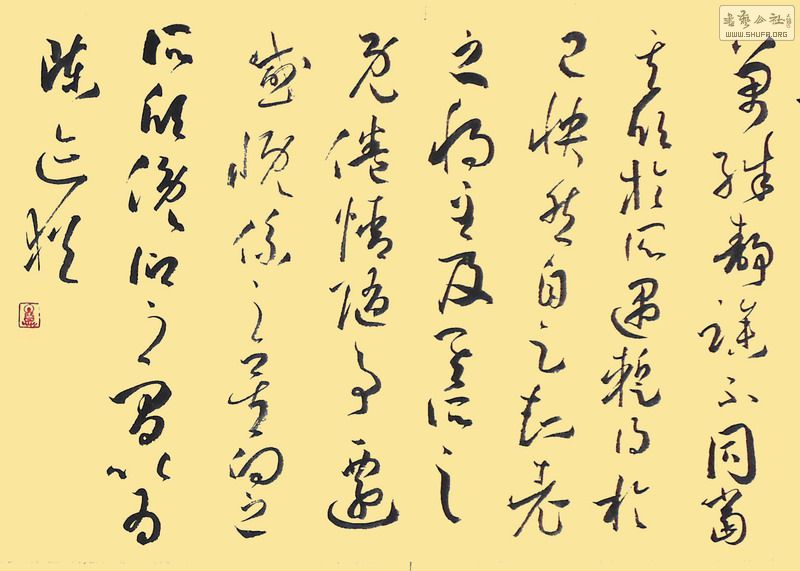 萬殊靜躁不同當
其欣於所遇暫得於
己快然自足老
之將至及其所之
既倦情隨事遷
感慨係之矣向之
所欣俛仰之間以為
陳迹猶
書藝公社
WWW.SHUFA.ORG